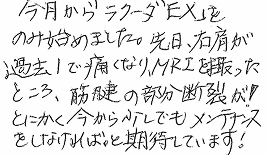 今月からラクーダEXを
のみ始めました。先日、右肩が
過去1で痛くなり、MRIを撮った
ところ、筋腱の部分断裂が!!
とにかく今から少しでもメンテナンス
をしなければ。と期待しています!